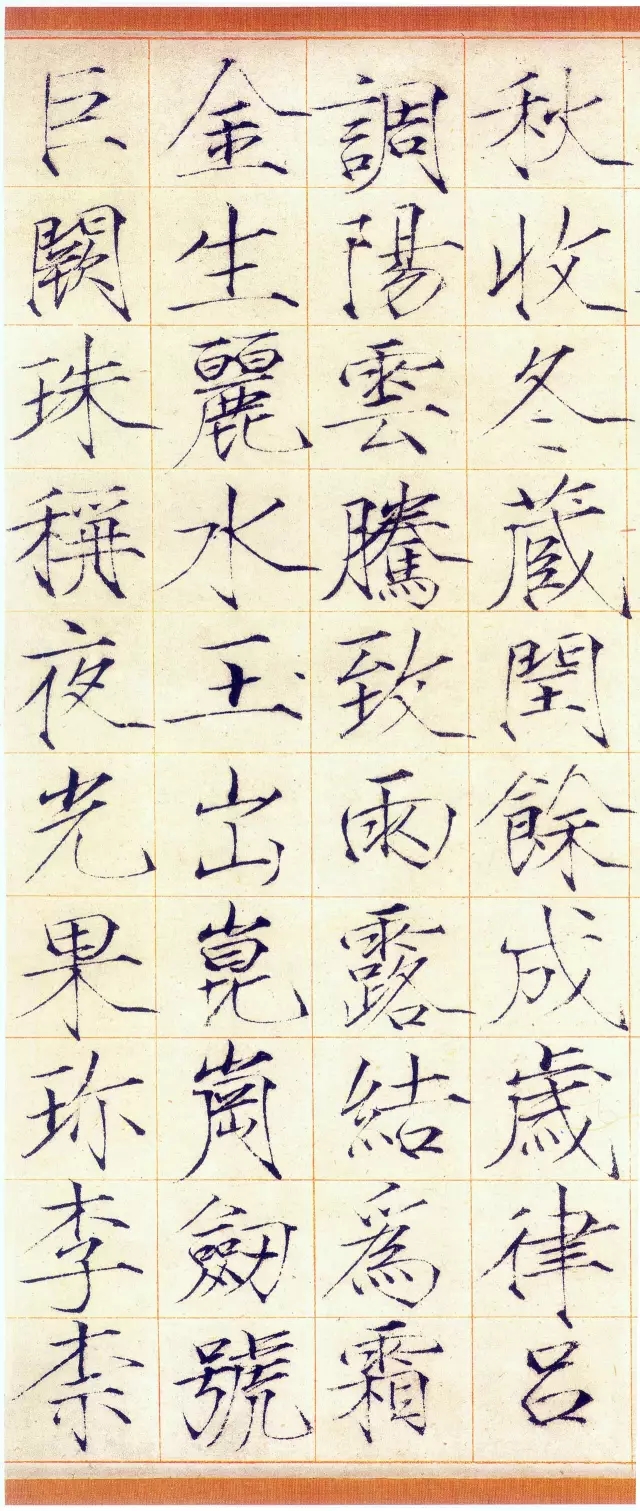 秋收冬蔵閏餘成歳律呂
調陽雲騰致雨露結為霜
金生麗水玉出崑崗劔號
巨闕珠稱夜光果珎李柰